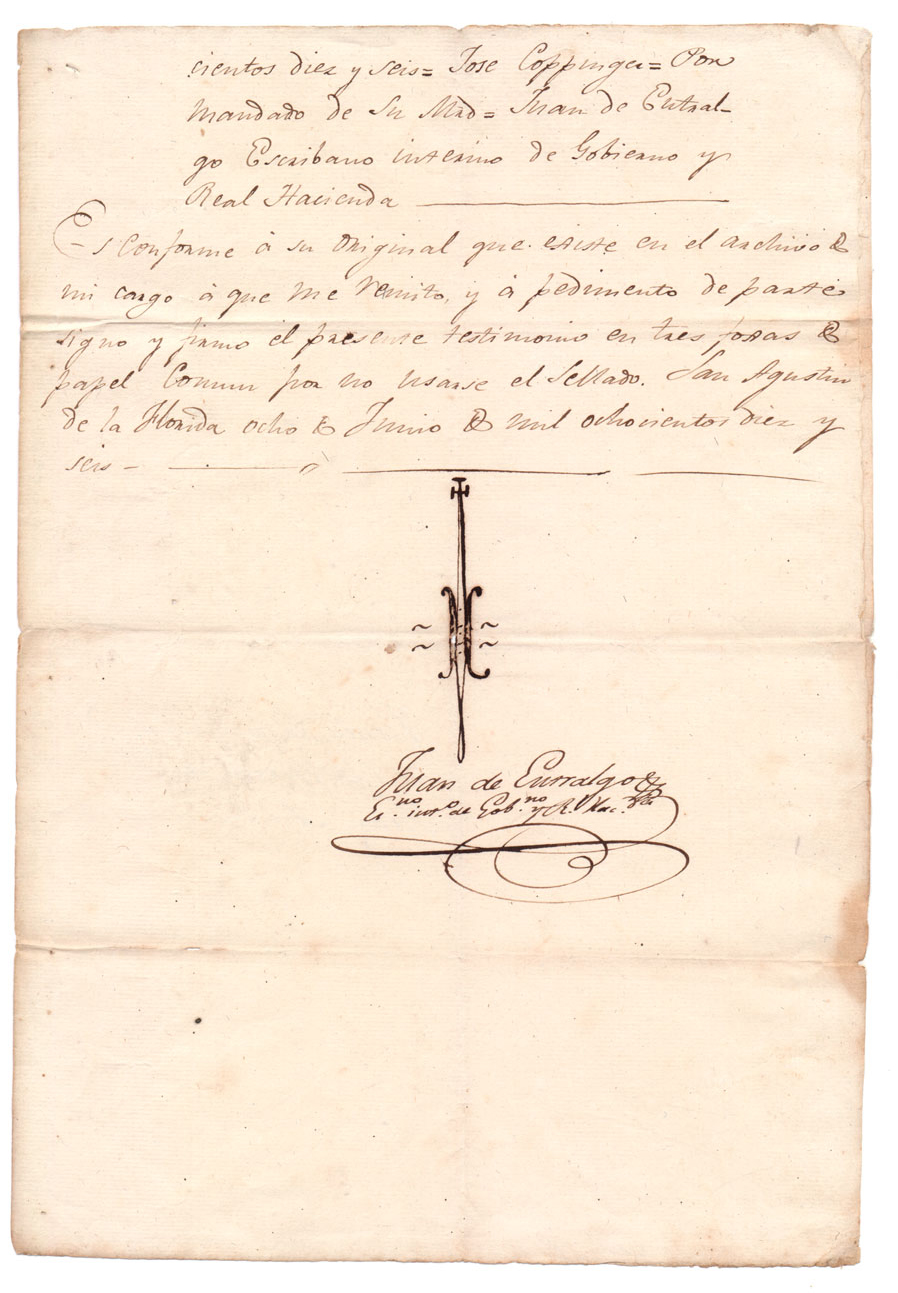 cientos diez y seis= Jose Coppinger= Por
mandado de Su Mrd= Juan de Entral-
go Escribano interino de Gobierno y
Real Hacienda
Es conforme á su original que existe en el archivo de
mi cargo á que me remito, y á pedimento de parte
signo y firmo el presente testimonio en tres foxas de
papel Comun por no usarse el Sellado. San Agustin
de la Florida ocho de Junio de mil ochocientos diez y
seis-
Juan de Entralgo
Es.no int.o de Gob.no y R.l Hac.da